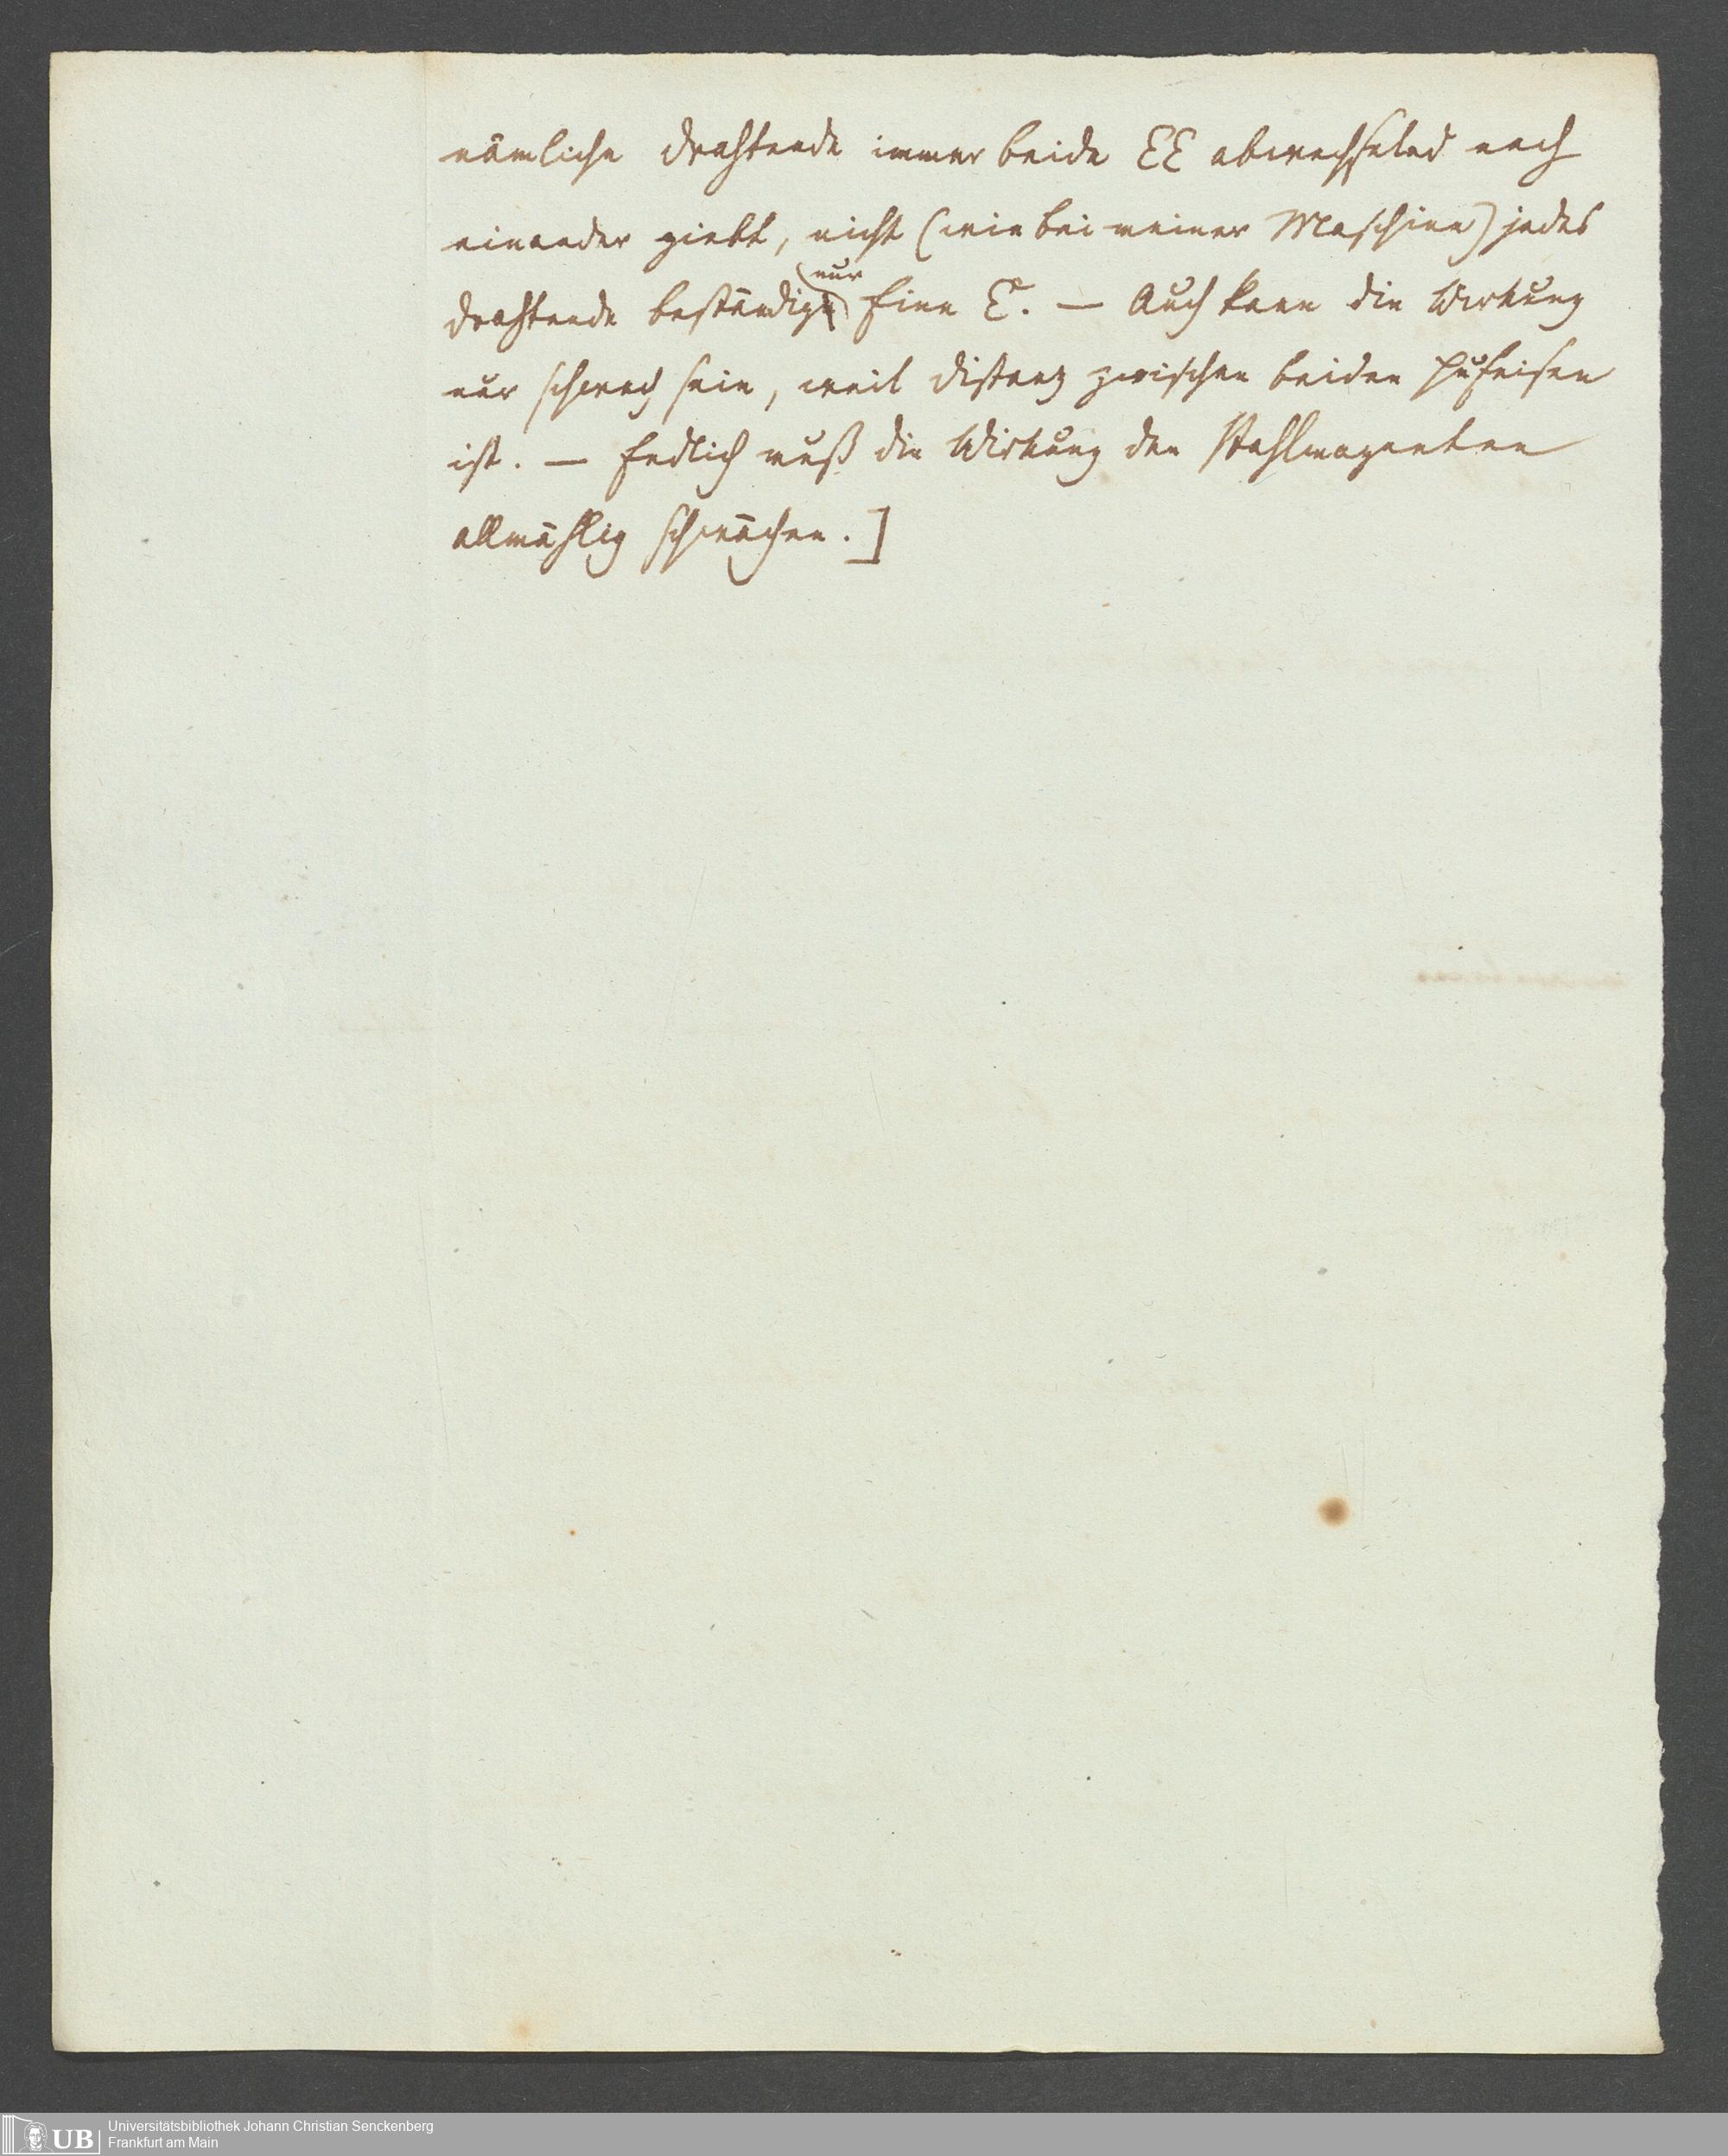 nämliche Drahtende immer beide EE abwechselnd nach
einander giebt, nicht (wie bei meiner Maschine) jedes
Drahtende beständig nur Eine E. — Auch kann die Wirkung
nur schwach sein, weil Distanz zwischen beiden Hufeisen
ist. — Endlich muß die Wirkung der Stahlmagneten
allmählig schwächen.]
UB Universitätsbibliothek Johann Christian Senckenberg
Frankfurt am Main